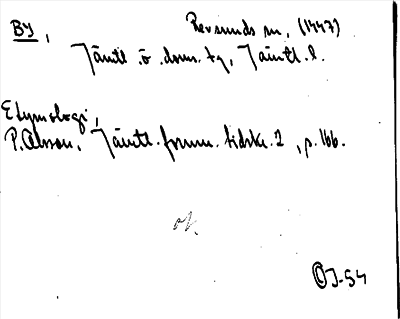 By, Revsunds sn, (1447)
Jämtl. ö. doms. tg, Jämtl. l.
Etymologi,
P. Olsson, Jämtl. fornm. tidskr. 2, p. 166.
OJ-54